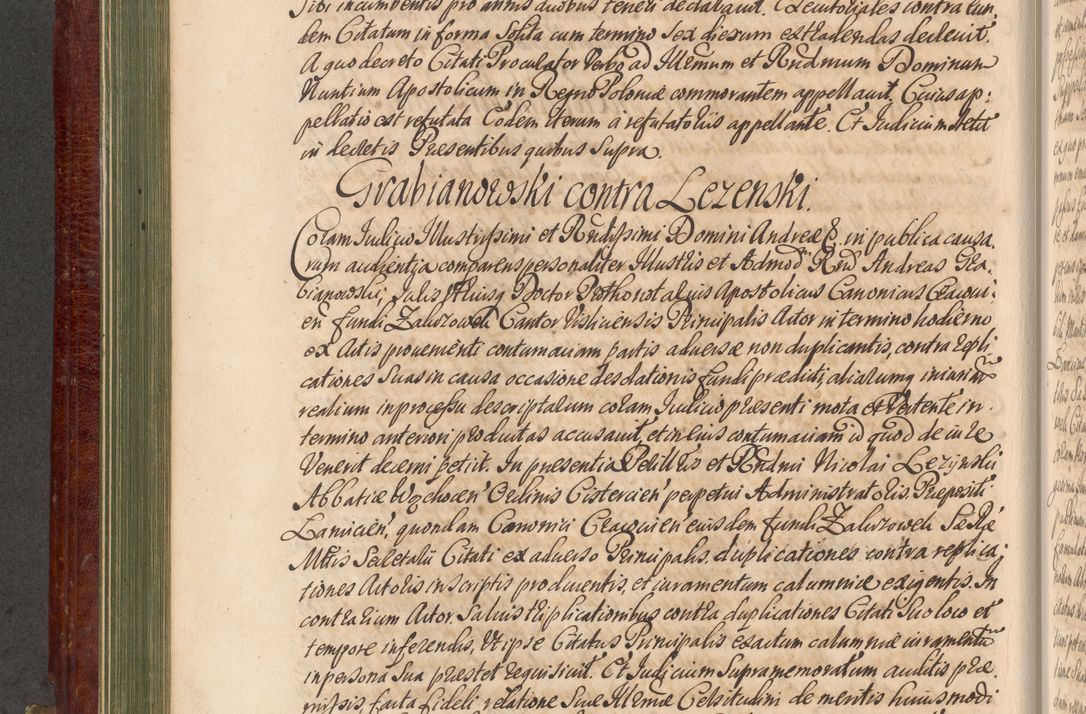 sibi incumbentis pro annis duobus teneri declaravit. Executoriales contra eun-
dem Citatum in forma solita cum termino sex dierum extradendas decrevit.
A quo decreto Citati Procurator Verbo ad Illrmum et Rndmum Dominum
Nuntium Apostolicum in Regno Poloniæ commorantem appellavit. Cuius ap-
pellatio est refutata Eodem iterum a refutatoriis appellante. Et Iudicium stetit
in decretis Præsentibus quibus supra.
Grabianowski contra Lezenski.
Coram Iudicio Illustrissimi et Rndissimi Domini Andreæ &. in publica causa-
rum audientia comparens personaliter Illustris et Admod Rnd Andreas Gra-
bianowski, Iuris Utriusq Doctor Prothonotarius Apostolicus Canonicus Cracovi-
en fundi Zaluzowek Cantor Visliciensis Principalis Actor in termino hodierno
ex Actis provenienti contumaciam partis adversæ non duplicantis, contra repli-
cationes suas in causa occasione desolationis fundi prædicti, aliarumq iniuriar
realium in processu descriptarum coram Iudicio præsenti mota et Vertente in
termino anteriori productas accusavit, et in eius contumaciam id quod de iure
Venerit decerni petiit. In præsentia Perillris et Rndmi Nicolai Lezynski
Abbatiæ Wąchocen Ordinis Cistercien perpetui Administratoris Præpositi
Lancicien, quondam Canonici Cracovien eiusdem fundi Zaluzowek Sacræ
Mttis Secretarii Citati ex adverso Principalis, duplicationes contra replica-
tiones Actoris in scriptis producentis, et iuramentum calumniæ exigentis. In
contrarium Actor. Salvis triplicationibus contra duplicationes Citati suo loco et
tempore inferendis, Ut ipse Citatus Principalis exactum calumniæ iuramentū
in persona sua præstet requisivit. Et Iudicium supramemoratum auditis præ-
missis, facta fideli relatione suæ Illrmæ Celsitudini de meritis huiusmodi